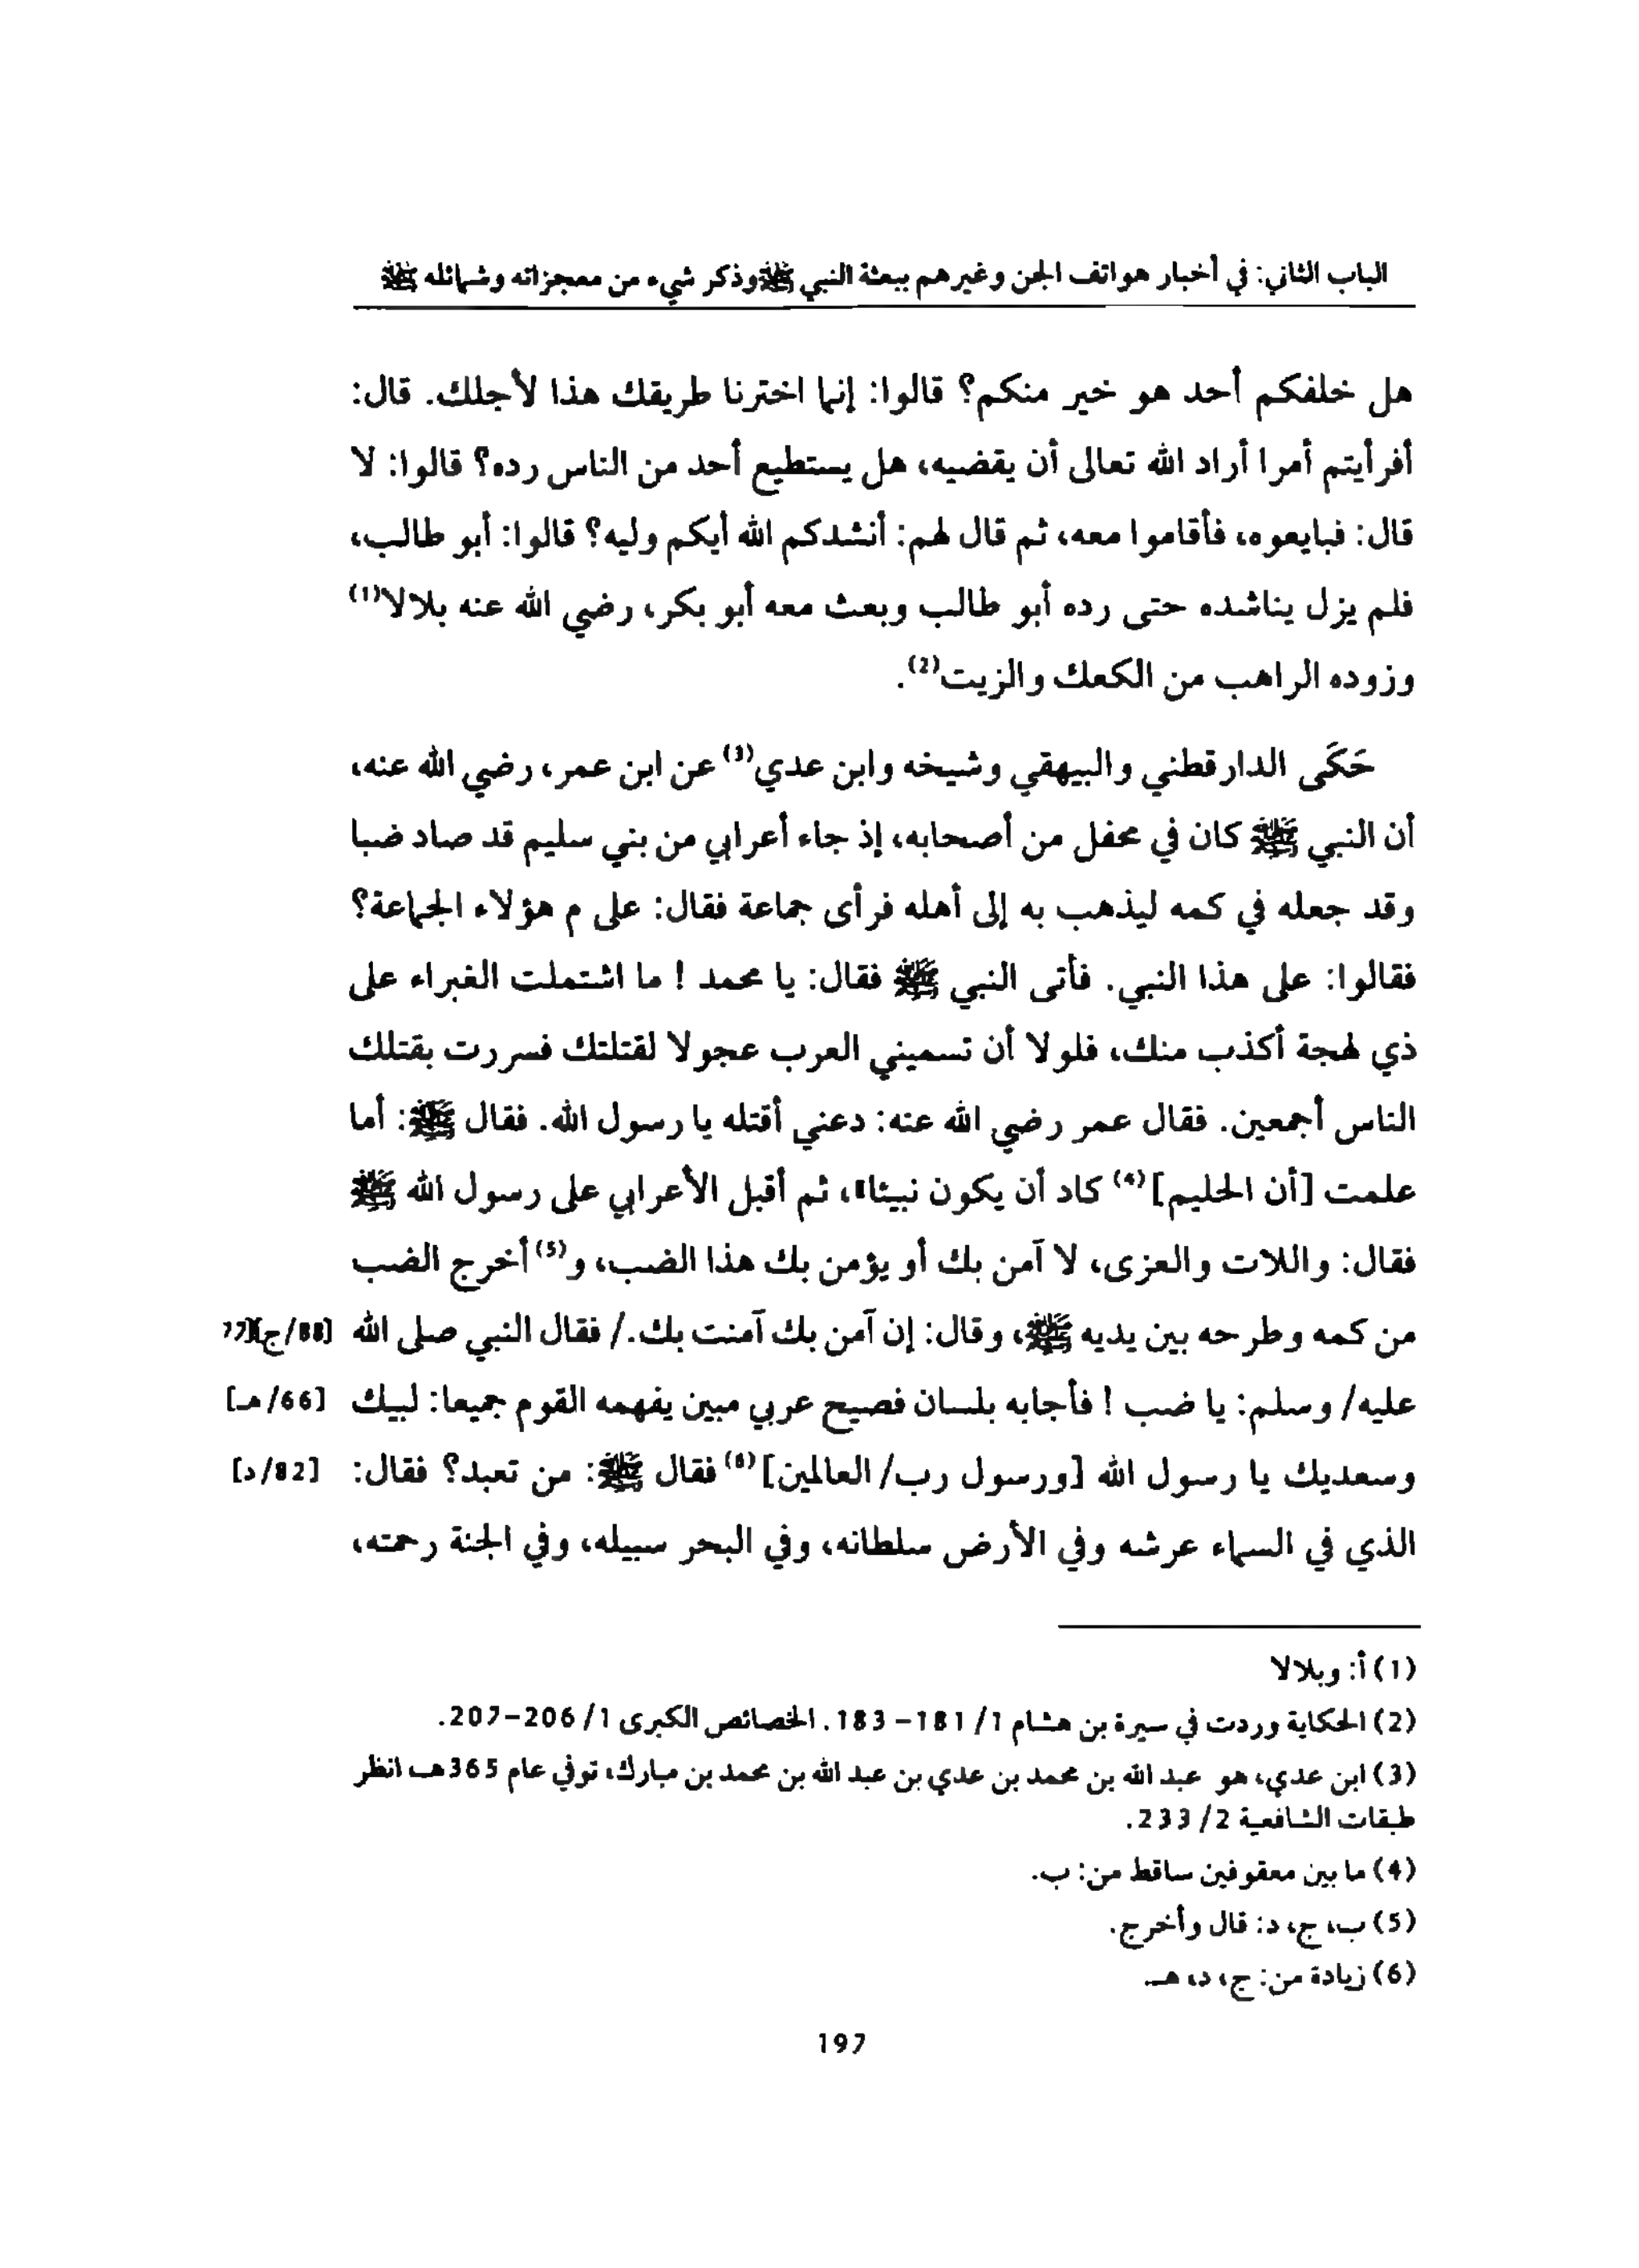 الباب الثاني: في أخبار هواتف الجن وغيرهم ببعثة النبي ﷺ وذكر شيء من معجزاته وشمائله ﷺ
هل خلفكم أحد هو خير منكم؟ قالوا: إنما اخترنا طريقك هذا لأجلك. قال:
أفرأيتم أمرا أراد الله تعالى أن يقضيه، هل يستطيع أحد من الناس رده؟ قالوا: لا
قال: فبايعوه، فأقاموا معه، ثم قال لهم: أنشدكم الله أيكم وليه؟ قالوا: أبو طالب،
فلم يزل يناشده حتى رده أبو طالب وبعث معه أبو بكر، رضي الله عنه بلالا(1)
وزوده الراهب من الكعك والزيت(2).
حَكَى الدارقطني والبيهقي وشيخه وابن عدي(3) عن ابن عمر، رضي الله عنه،
أن النبي ﷺ كان في محفل من أصحابه، إذ جاء أعرابي من بني سليم قد صاد ضبا
وقد جعله في كمه ليذهب به إلى أهله فرأى جماعة فقال: على م هؤلاء الجماعة؟
فقالوا: على هذا النبي. فأتى النبي ﷺ فقال: يا محمد ! ما اشتملت الغبراء على
ذي لهجة أكذب منك، فلولا أن تسميني العرب عجولا لقتلتك فسررت بقتلك
الناس أجمعين. فقال عمر رضي الله عنه: دعني أقتله يا رسول الله. فقال ﷺ: أما
علمت [أن الحليم](4) كاد أن يكون نبيئا"، ثم أقبل الأعرابي على رسول الله ﷺ
فقال: واللات والعزى، لا آمن بك أو يؤمن بك هذا الضب، و(5) أخرج الضب
من كمه وطرحه بين يديه ﷺ، وقال: إن آمن بك آمنت بك./ فقال النبي صلى الله [88/ج]
عليه/ وسلم: يا ضب ! فأجابه بلسان فصيح عربي مبين يفهمه القوم جميعا: لبيك [66/هـ]
وسعديك يا رسول الله [ورسول رب/ العالمين](6) فقال ﷺ: من تعبد؟ فقال: [82/د]
الذي في السماء عرشه وفي الأرض سلطانه، وفي البحر سبيله، وفي الجنة رحمته،
(1) أ: وبلالا
(2) الحكاية وردت في سيرة بن هشام 1/ 181- 183. الخصائص الكبرى 1/ 206-207.
(3) ابن عدي، هو عبد الله بن محمد بن عدي بن عبد الله بن محمد بن مبارك، توفي عام 365هـ انظر
طبقات الشافعية 2/ 233.
(4) ما بين معقوفين ساقط من: ب.
(5) ب، ج، د: قال وأخرج.
(6) زيادة من: ج، د، هـ.
197